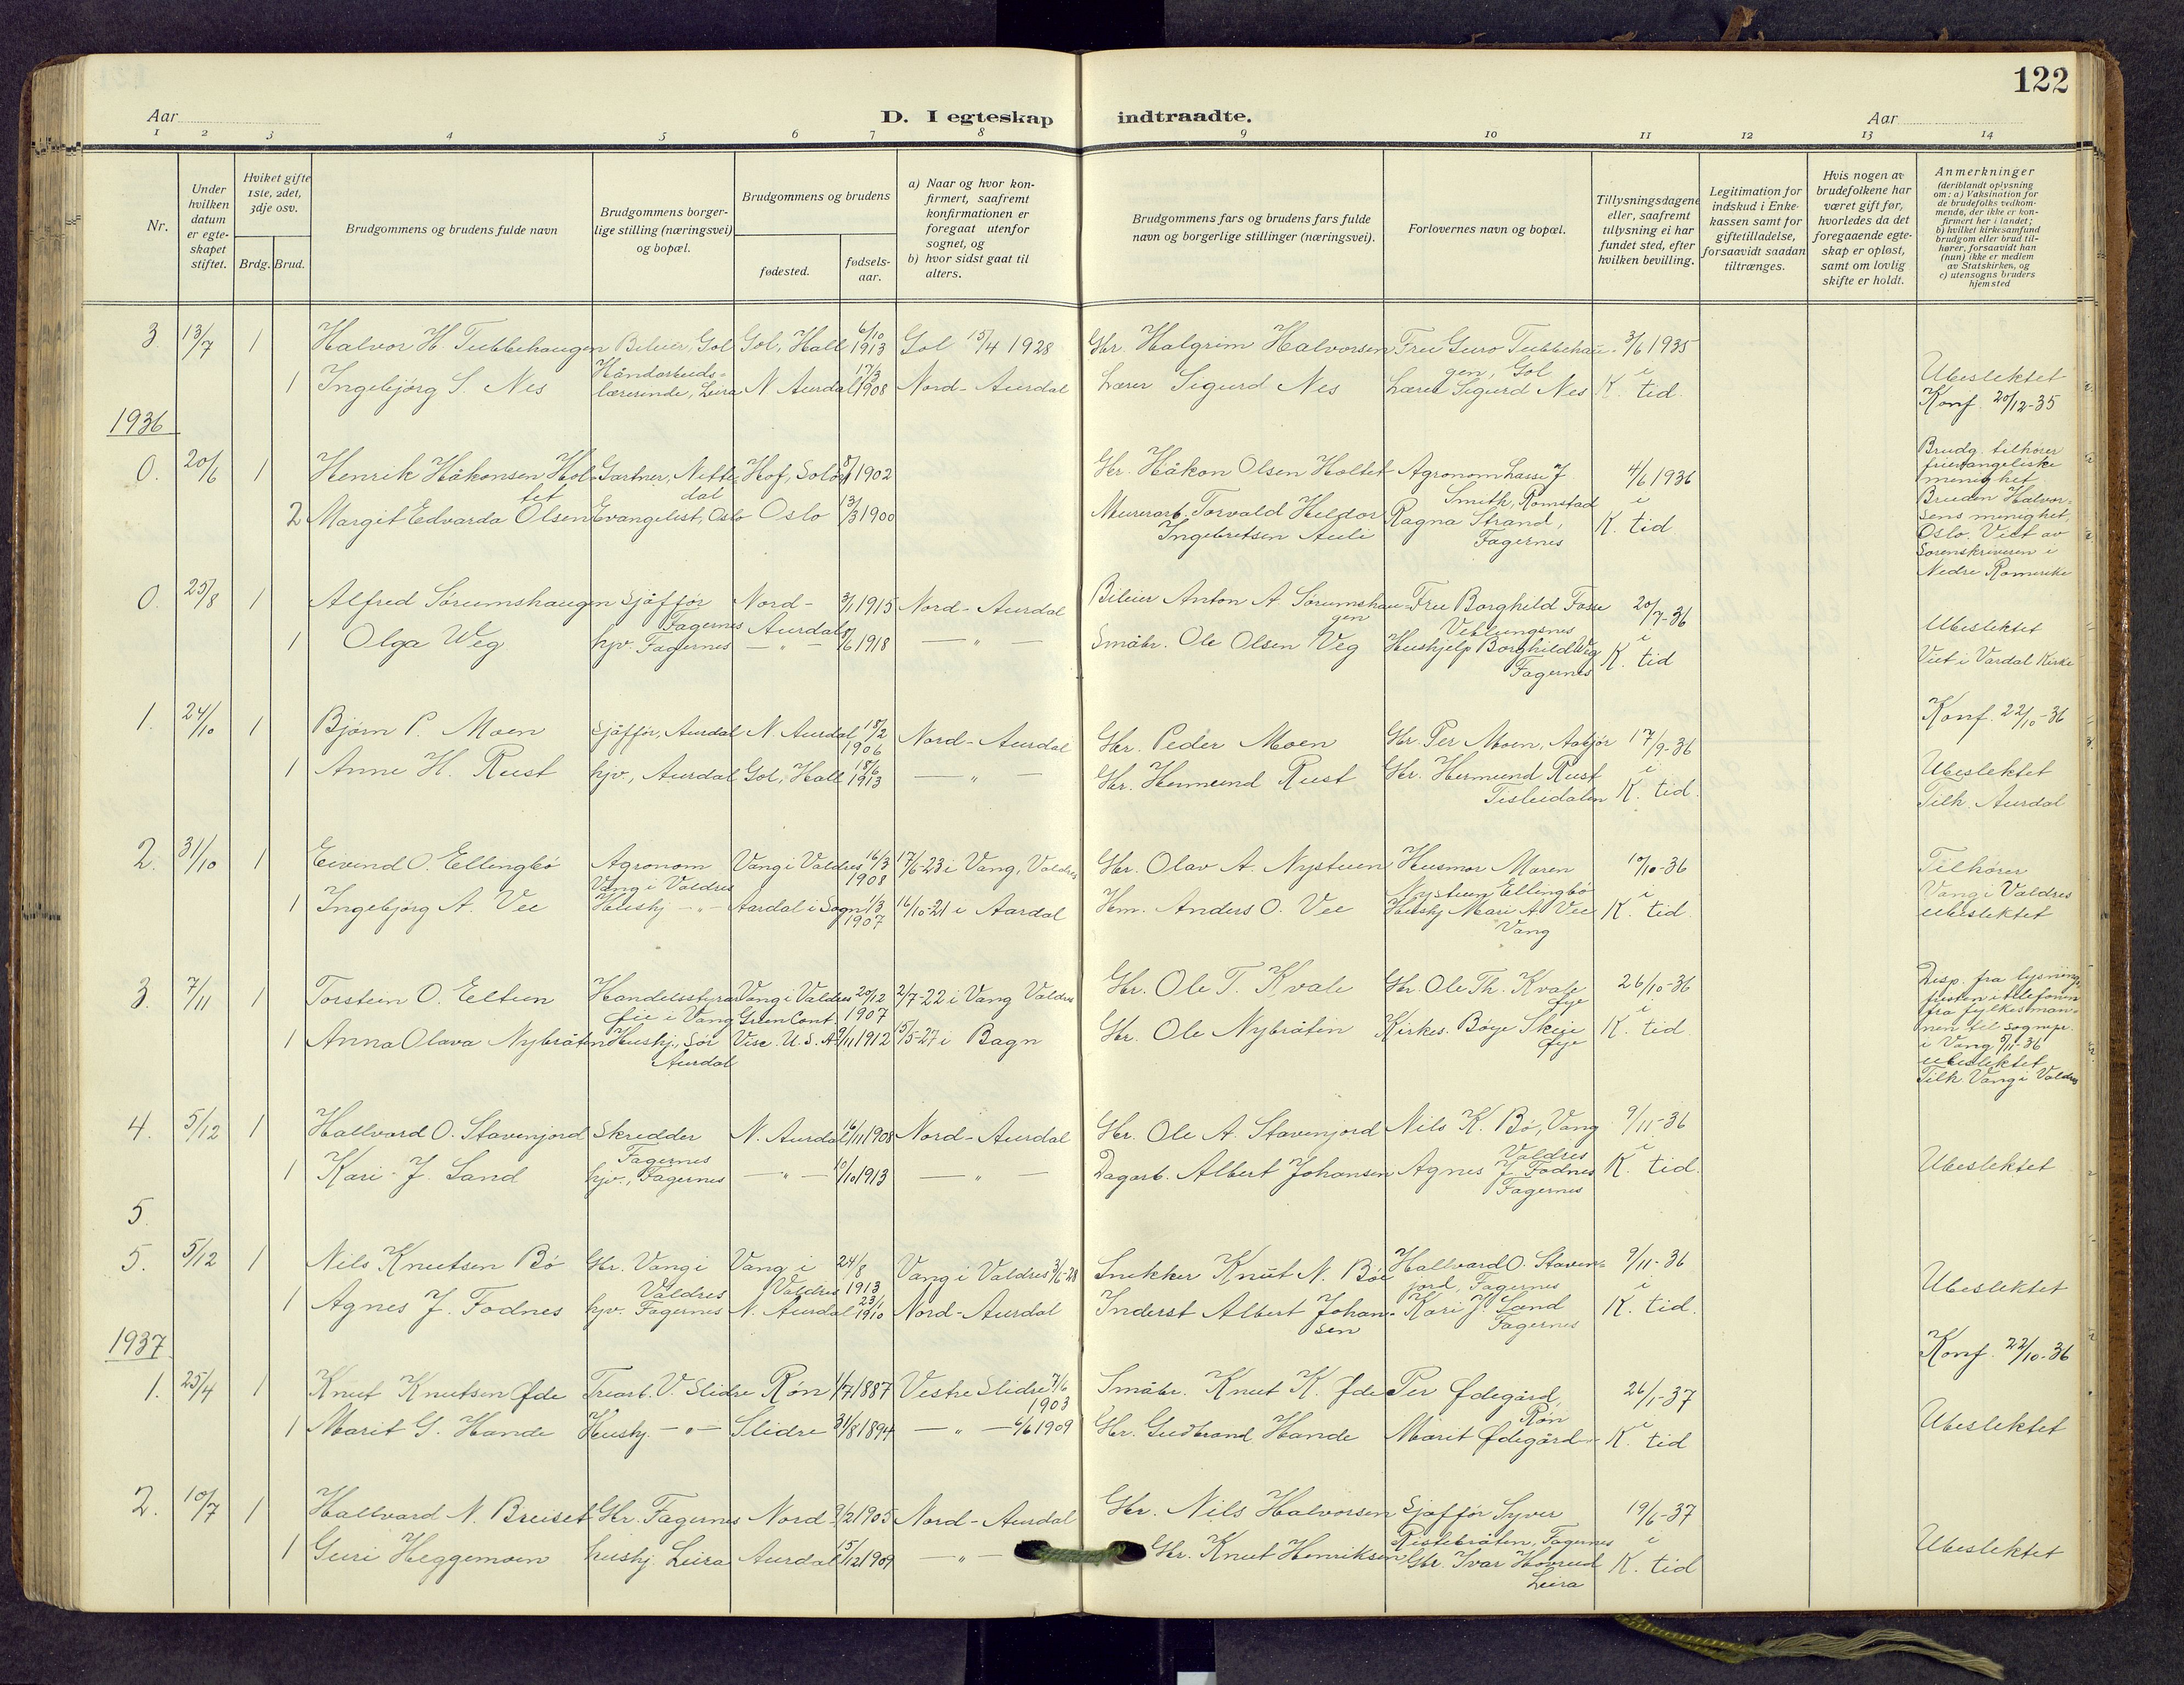 122
Aar
D. I egteskap indtraadte.
Aar
1 2 3 4 5 6 7 8 9 10 11 12 13 14
Nr.
Under hvilken datum er egte-skapet stiftet.
Hviket gifte 1ste, 2det, 3dje osv.
Brdg. Brud.
Brudgommens og brudens fulde navn
Brudgommens borger-lige stilling (næringsvei) og bopæl.
Brudgommens og brudens
fødested.
fødsels-aar.
a) Naar og hvor kon-firmert, saafremt konfirmationen er foregaat utenfor sognet, og
b) hvor sidst gaat til alters.
Brudgommens fars og brudens fars fulde navn og borgerlige stillinger (næringsvei).
Forlovernes navn og bopæl.
Tillysningsdagene eller, saafremt tillysning ei har fundet sted, efter hvilken bevilling.
Legitimation for indskud i Enke-kassen samt for giftetilladelse, forsaavidt saadan tiltrænges.
Hvis nogen av brudefolkene har været gift før, hvorledes da det foregaaende egte-skap er opløst, samt om lovlig skifte er holdt.
Anmerkninger (deriblandt oplysning om: a) Vaksination for de brudefolks vedkom-mende, der ikke er kon-firmert her i landet; b) hvilket kirkesamfund brudgom eller brud til-hører, forsaavidt han (hun) ikke er medlem av Statskirken, og c) utensogns bruders hjemsted
3. 13/7 1 Halvor H. Tubbehaugen Bileier, Gol Gol, Hall 6/10 1913 Gol 15/4 1928 Gbr. Halgrim Halvorsen Fru Guro Tubbehau-gen, Gol 3/6 1935
1 Ingebjørg S. Nes Håndarbeids-lærerinde, Leira N Aurdal 17/3 1908 Nord-Aurdal Lærer Sigurd Nes Lærer Sigurd Nes i K. tid. Ubeslektet
Konf. 20/12-35
1936
0. 20/6 1 Henrik Håkonsen Hol-tet Gartner, Nitte-dal Hof, Solør 1902 Gbr. Håkon Olsen Holtet Agronom Lasse J Smith, Romstad 4/6 1936
2 Margit Edvarda Olsen Evangelist, Oslo Oslo 13/3 1900 Murerarb. Torvald Heldor Ingebretsen Auli Ragna Strand, Fagernes i K. tid
Brudg. tilhører
frievangeliske
menighet
Bruden Halvor-
sens menighet,
Oslo. Viet av
Sorenskriveren i
Nedre Romerike
0. 25/8 1 Alfred Sørumshaugen Sjåffør Fagernes Nord-Aurdal 3/1 1915 Nord-Aurdal Bileier Anton A Sørumshau-gen Fru Borghild Fosse Veblungsnes 20/7-36
1 Olga Weg hjv. Fagernes — " — 8/6 1918 — " — Småbr. Ole Olsen Veg Hushjelp Borghild Veg Fagernes i K. tid
Ubeslektet
Viet i Vardal Kirke
1. 24/10 1 Bjørn P. Moen Sjåffør, Aurdal N. Aurdal 18/2 1906 Nord-Aurdal Gbr. Peder Moen Gbr. Per Moen, Aabjør 17/9-36
Konf. 22/10-36
1 Anne H. Rust hjv., Aurdal Gol, Hall 18/6 1913 — " — Gbr. Hermund Rust Gbr. Hermund Rust Tisleidalen i K. tid.
Ubeslektet
Tilh. Aurdal
2. 31/10 1 Eivind O. Ellingbø Agronom Vang i Valdres Vang i Valdres 16/3 1908 17/6-23 i Vang, Valdres Gbr. Olav A. Nystuen Husmor Maren Nystuen Ellingbø 10/10-36
1 Ingebjørg A. Vee Hushj — " — Aardal i Sogn 1/3 1907 16/10-21 i Aardal Hm. Anders O. Vee Hushj Mari A Vee Vang i K. tid.
Tilhører
Vang i Valdres
ubeslektet
3. 7/11 1 Torstein O. Eltun Handelsstyrar Øie i Vang Vang i Valdres 20/12 1907 2/7-22 i Vang Valdres Gbr. Ole T. Kvale Gbr. Ole Th. Kvale Øye 26/10-36
1 Anna Olava Nybråten Hushj., Sør Aurdal Green Cont. Visc. U.S.A. 9/11 1912 15/5-27 i Bagn Gbr. Ole Nybråtin Kirkes. Bøye Skeie Øye i K. tid.
Disp. fra lysnings-
fristen i tilefonen
fra fylkesman-
nen til sognepr.
i Vang 5/11-36
ubeslektet
Tilh Vang i Valdres
4. 5/12 1 Hallvard O. Stavenjord Skredder Fagernes N. Aurdal 16/11 1908 Nord-Aurdal Gbr. Ole A. Stavenjord Nils K. Bø, Vang Valdres 9/11-36
1 Kari J. Sand hjv., Fagernes — " — 10/10 1913 — " — Dagarb. Albert Johansen Agnes J. Fodnes Fagernes i K. tid. Ubeslektet
5.
5. 5/12 1 Nils Knutsen Bø Gbr. Vang i Valdres Vang i Valdres 24/8 1913 Vang i Valdres 3/6-28 Snekker Knut N. Bøe Hallvard O. Staven-jord, Fagernes 9/11-36
1 Agnes J. Fodnes hjv. Fagernes N. Aurdal 23/1 1910 Nord-Aurdal Inderst Albert Johan-sen Kari J Sand Fagernes i K. tid. Ubeslektet
1937
Konf. 22/10-36
1. 25/4 1 Knut Knutsen Øde Trearb. V. Slidre Røn 1/7 1887 Vestre Slidre 7/6 1903 Småbr. Knut K. Øde Per Ødegård, Røn 26/1-37
1 Marit G. Hande Hushj. — " — Slidre 31/8 1894 — " — 6/6 1909 Gbr. Gudbrand Hande Marit Ødegård i K. tid Ubeslektet
2. 10/7 1 Hallvard N. Breiset Gbr. Fagernes Nord- 9/2 1905 Nord-Aurdal Gbr. Nils Halvorsen Sjåffør Syver Ristebråten, Fagernes 19/6-37
1 Guri Heggemoen hushj. Leira Aurdal 15/12 1909 — " — Gbr. Knut Henriksen Gbr. Ivar Hovrud Leira i K. tid Ubeslektet